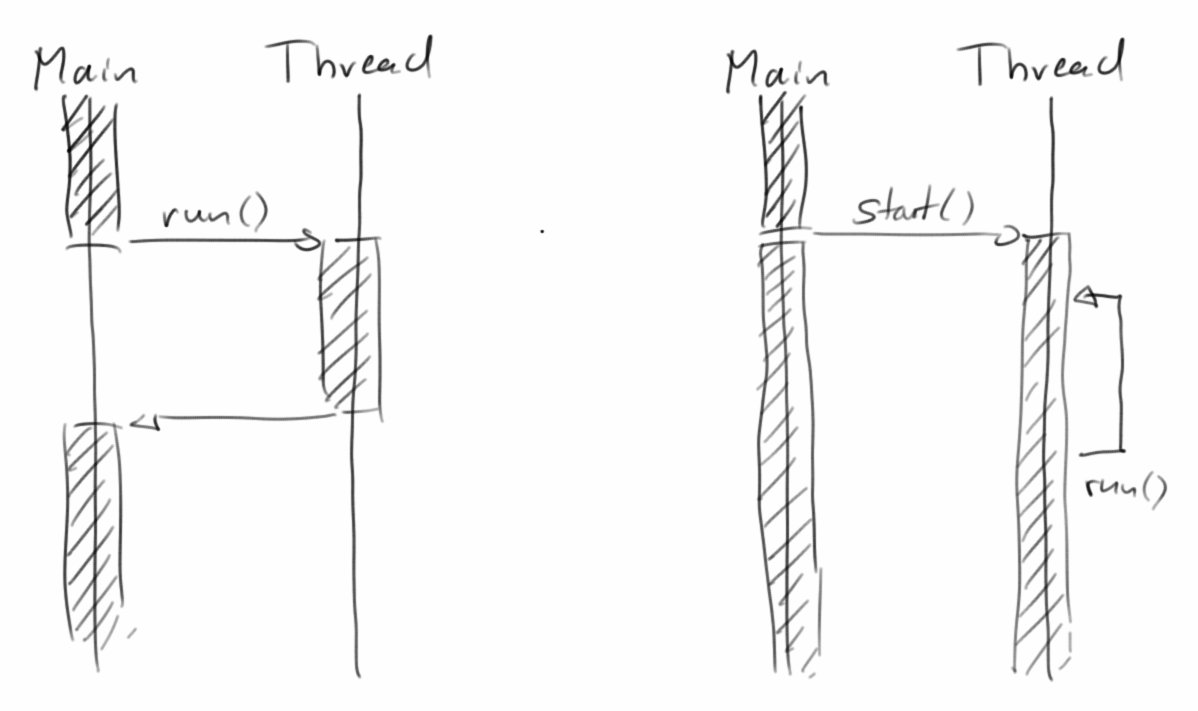 Main Thread
run()
Main Thread
start()
run()